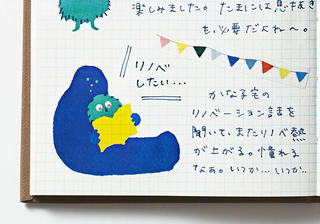 楽しみました。たまには息抜き
も必要だよね〜。
リノベ
したい…
かな子宅の
リノベーション話を
聞いて、またリノベ熱
が上がる。憧れる
なぁ。いつか…いつか…